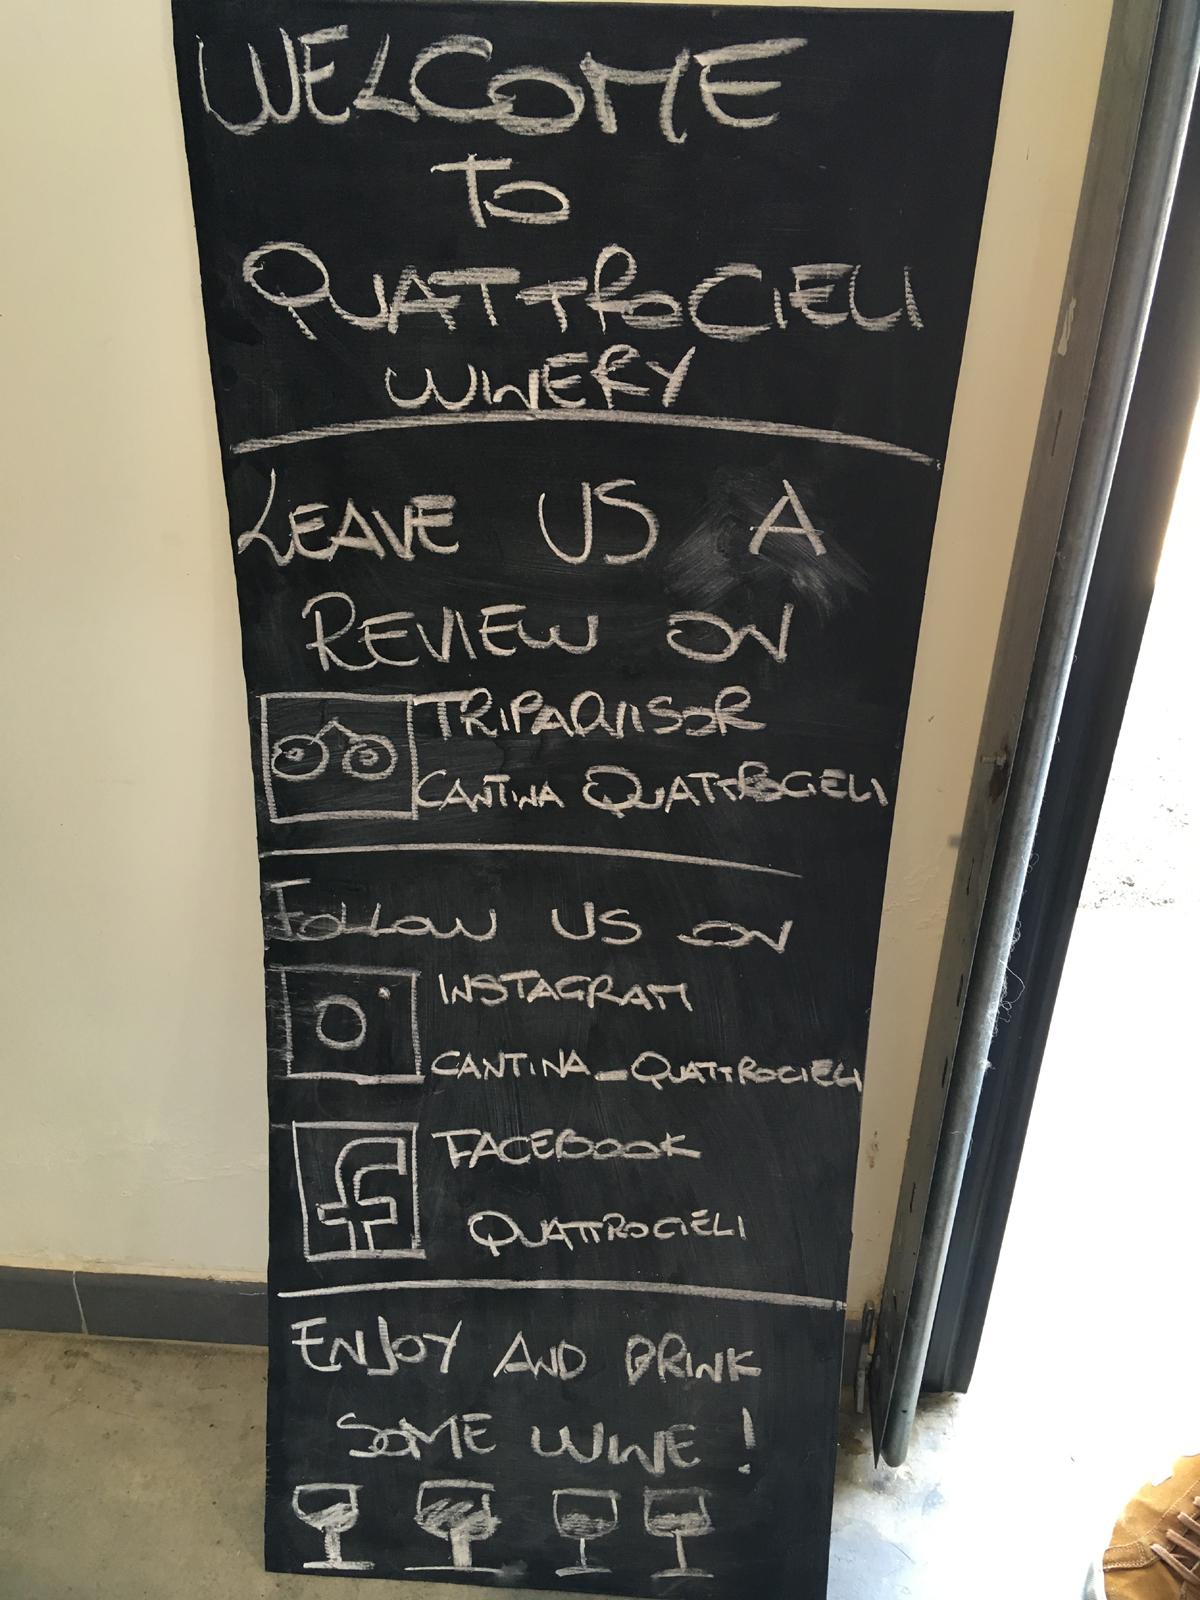 WELCOME
TO
QUATTROCIELI
WINERY
LEAVE US A
REVIEW ON
TRIPADVISOR
CANTINA QUATTROCIELI
FOLLOW US ON
INSTAGRAM
CANTINA_QUATTROCIELI
f
FACEBOOK
QUATTROCIELI
ENJOY AND DRINK
SOME WINE!